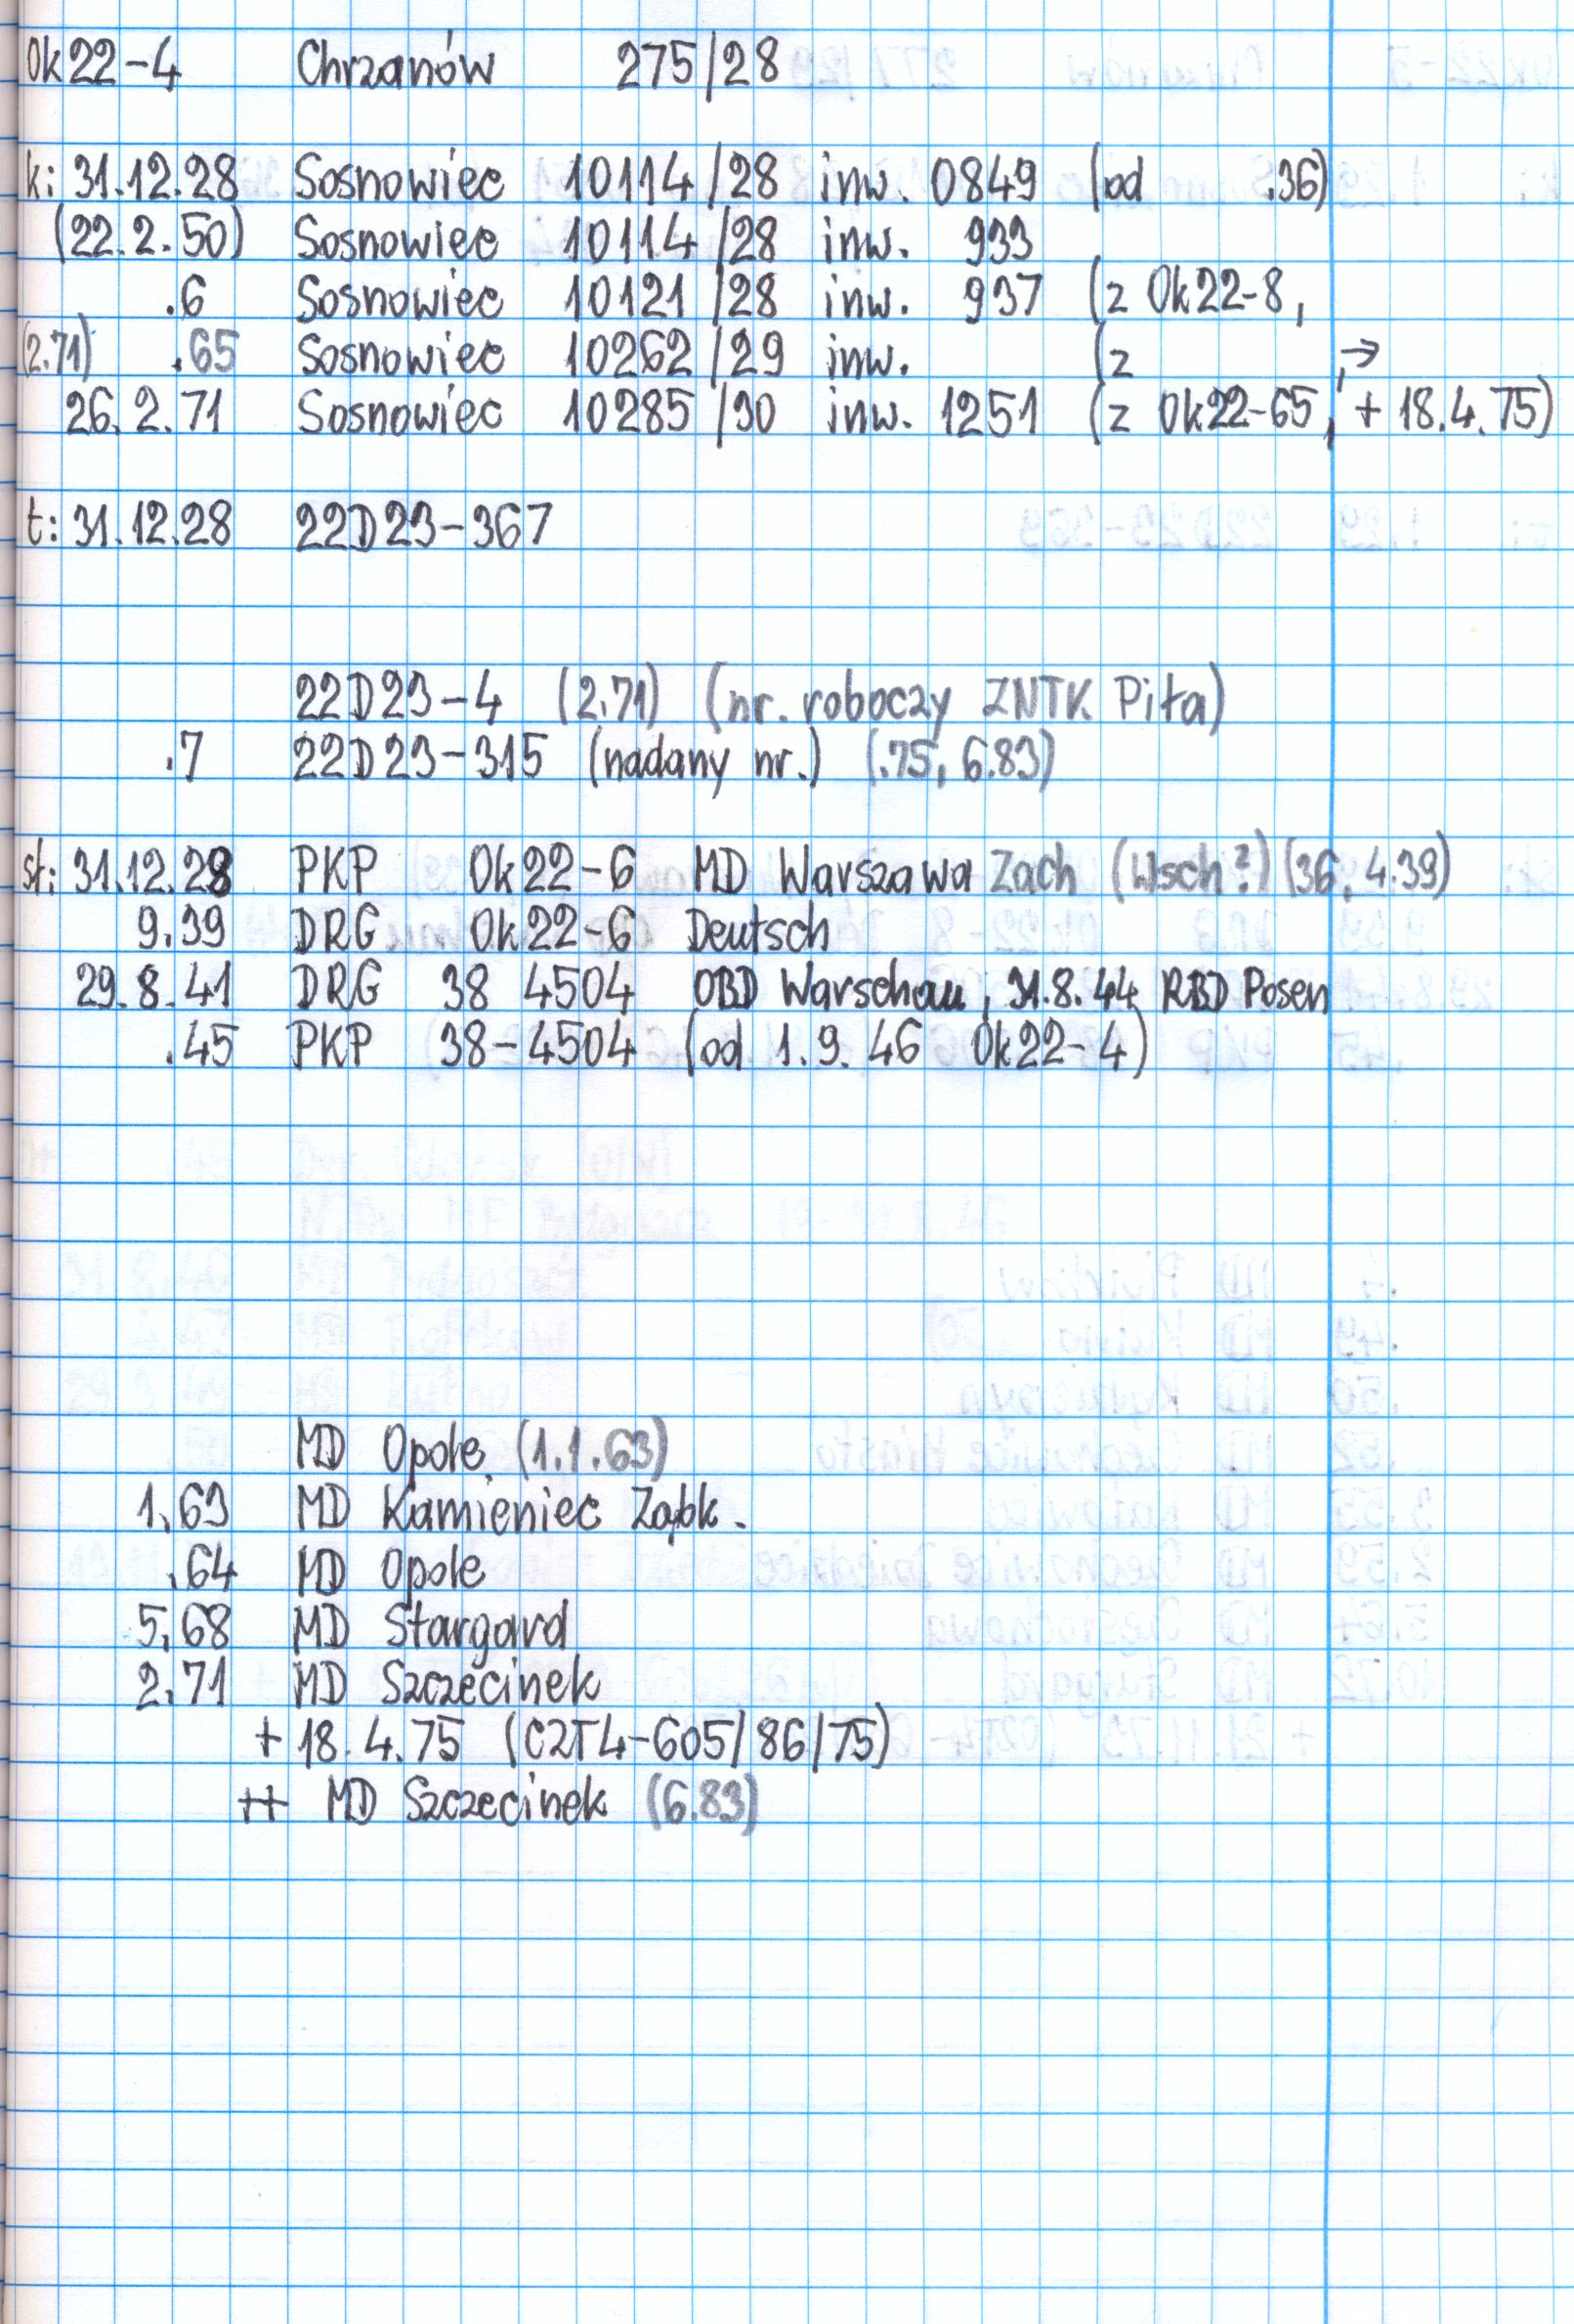 Ok22-4 Chrzanów 275/28
k: 31.12.28 Sosnowiec 10114/28 inw. 0849 (od .36)
(22.2.50) Sosnowiec 10114/28 inw. 933
.6 Sosnowiec 10121/28 inw. 937 (z Ok22-8,
(2.71) .65 Sosnowiec 10262/29 inw. (z , →
26.2.71 Sosnowiec 10285/30 inw. 1251 (z Ok22-65, + 18.4.75)
t: 31.12.28 22D23-367
22D23-4 (2.71) (nr. roboczy ZNTK Piła)
.7 22D23-315 (nadany nr.) (.75, 6.83)
st: 31.12.28 PKP Ok22-6 MD Warszawa Zach (Wsch?) (36, 4.39)
9.39 DRG Ok22-6 Deutsch
29.8.41 DRG 38 4504 OBD Warschau, 31.8.44 RBD Posen
.45 PKP 38-4504 (od 1.9.46 Ok22-4)
MD Opole (1.1.63)
1.63 MD Kamieniec Ząbk.
.64 MD Opole
5.68 MD Stargard
2.71 MD Szczecinek
+ 18.4.75 (C2T4-605/86/75)
++ MD Szczecinek (6.83)